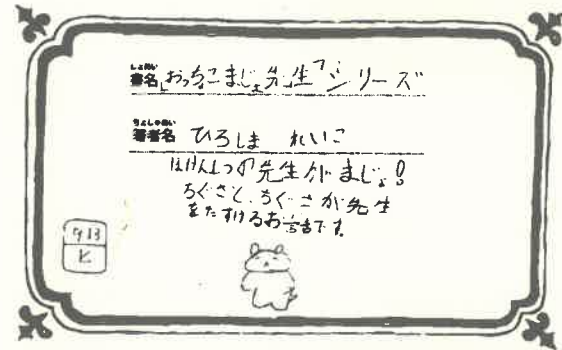 しょめい
書名 「おっちょこまじょ先生」シリーズ
ちょしゃめい
著者名 ひろしま れいこ
ほけんしつの先生がまじょ!
ちぐさと、ちぐさが先生
をたすけるお話です。
913
ヒ